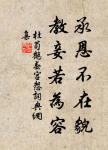 承恩不在貌
教妾若為容
杜荀鶴春宮怨詞典網
集